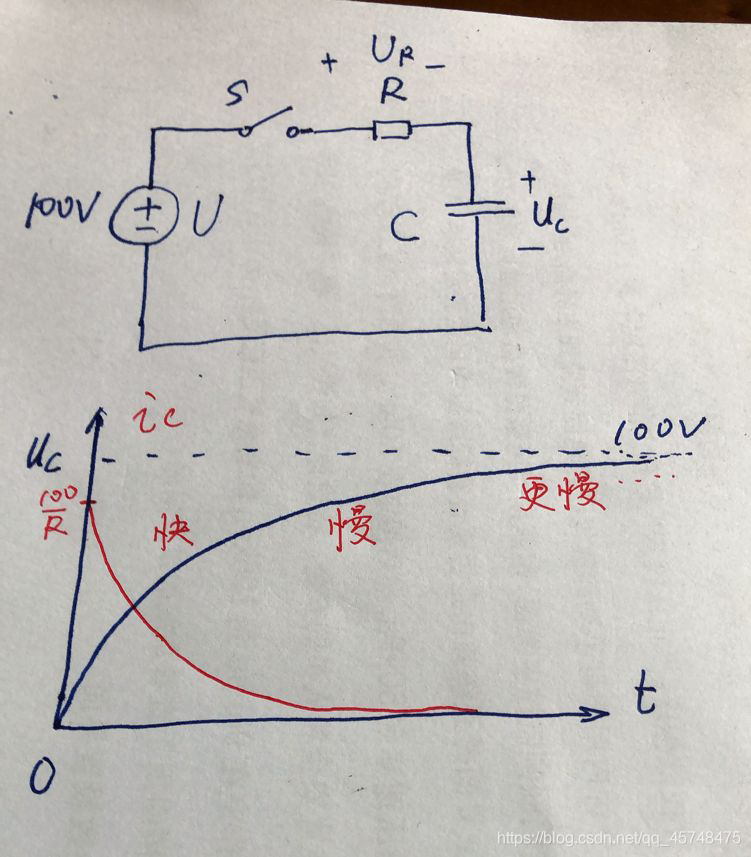 + U_R -
S
R
100V
+
-
U
C
+
u_c
-
i_c
u_c
100V
100/R
快
慢
更慢
t
0
https://blog.csdn.net/qq_45748475